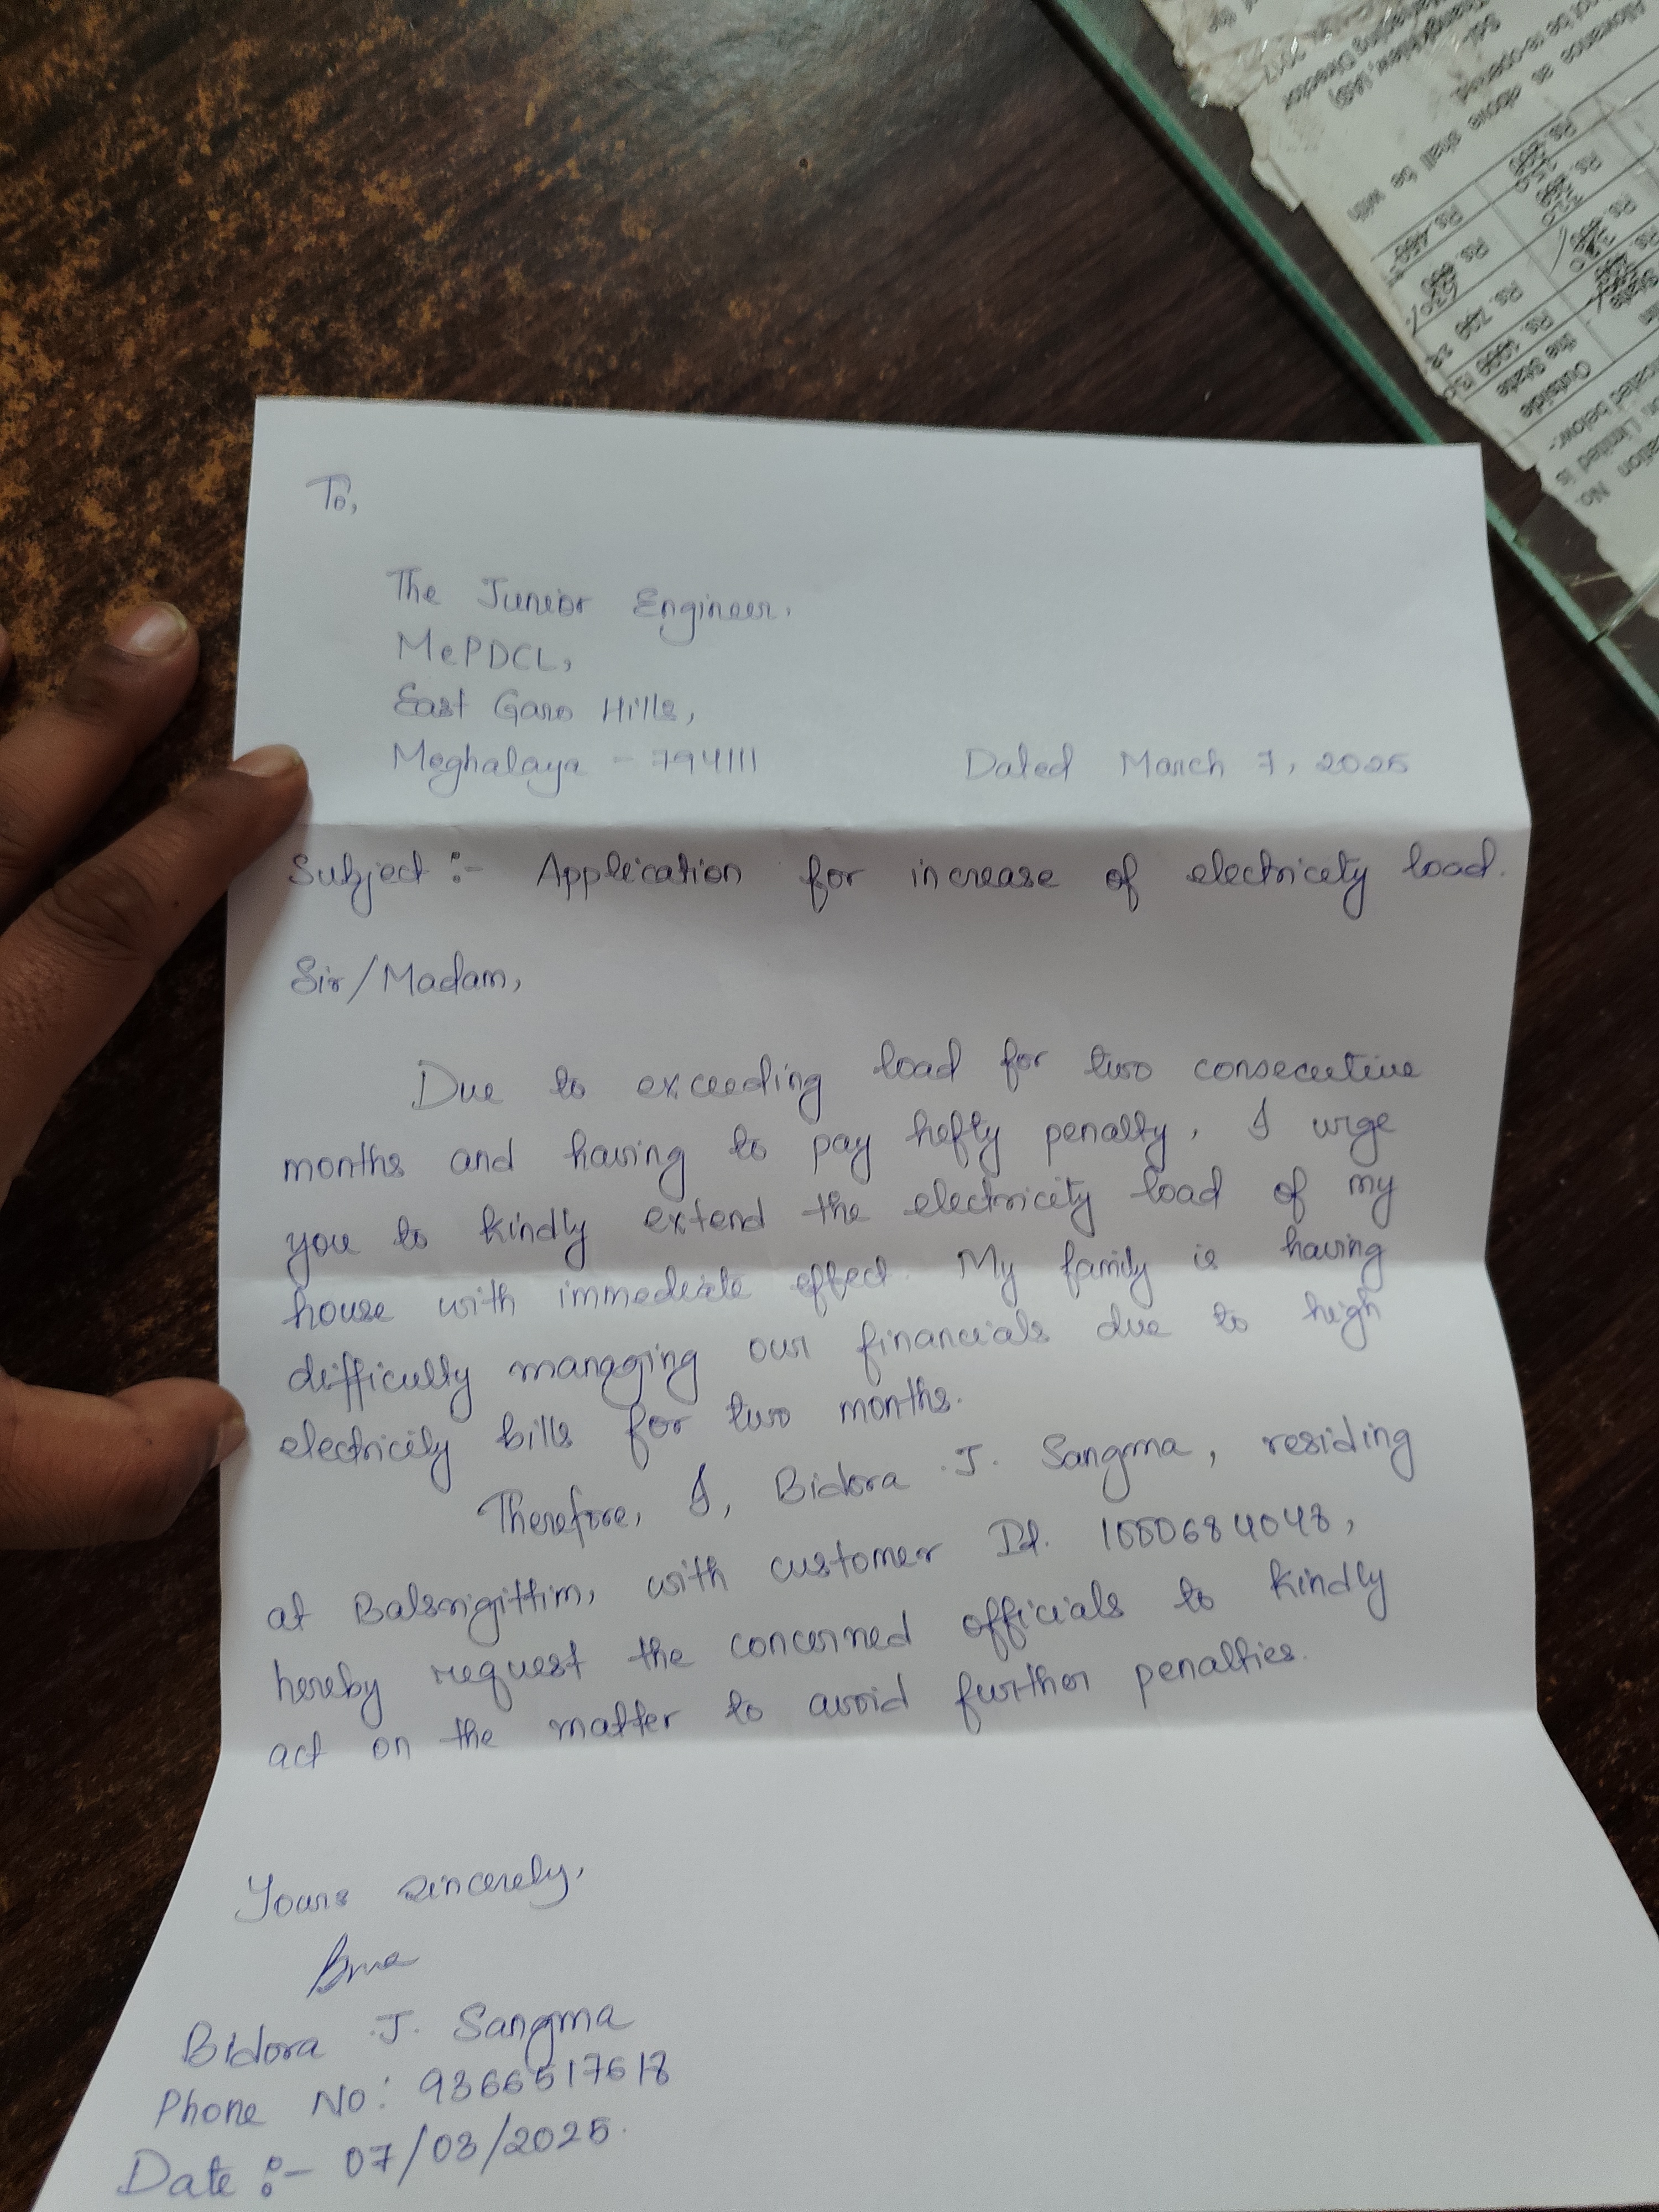 To,
The Junior Engineer,
MePDCL,
East Garo Hills,
Meghalaya - 794111
Dated March 7, 2025
Subject :- Application for increase of electricity load.
Sir/Madam,
Due to exceeding load for two consecutive
months and having to pay hefty penalty, I urge
you to kindly extend the electricity load of my
house with immediate effect. My family is having
difficulty managing our financials due to high
electricity bills for two months.
Therefore, I, Bidora J. Sangma, residing
at Balsrigittim, with customer Id.
hereby request the concerned officials to kindly
act on the matter to avoid further penalties.
Yours sincerely,
Bidora J. Sangma
Phone No: 9366517618
Date :- 07/03/2025.
No.
ation
on Limited is
icated below:-
Outside
the State
Rs. 1000
Rs. 700
Rs. 600
Rs. 450
State
Allowance as above shall be with
not be re-opened.
Sd/-
Managing Director